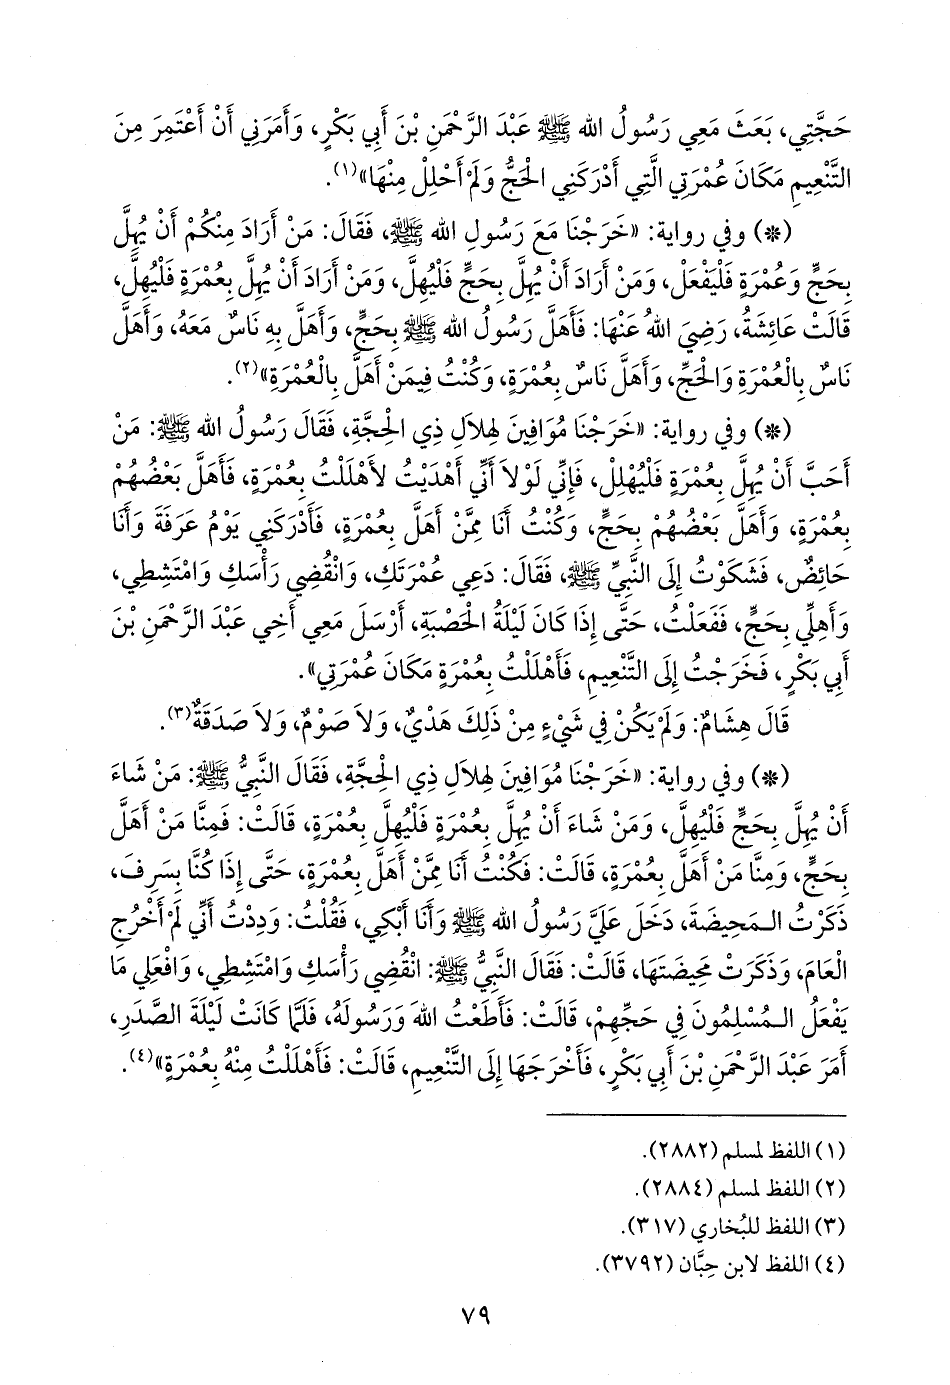 حَجَّتِي، بَعَثَ مَعِي رَسُولُ الله ﷺ عَبْدَ الرَّحْمَنِ بْنَ أَبِي بَكْرٍ، وَأَمَرَنِي أَنْ أَعْتَمِرَ مِنَ
التَّنْعِيمِ مَكَانَ عُمْرَتِي الَّتِي أَدْرَكَنِي الْحَجُّ وَلَمْ أَحْلِلْ مِنْهَا»(١).
(*) وفي رواية: «خَرَجْنَا مَعَ رَسُولِ الله ﷺ، فَقَالَ: مَنْ أَرَادَ مِنْكُمْ أَنْ يُهِلَّ
بِحَجٍّ وَعُمْرَةٍ فَلْيَفْعَلْ، وَمَنْ أَرَادَ أَنْ يُهِلَّ بِحَجٍّ فَلْيُهِلَّ، وَمَنْ أَرَادَ أَنْ يُهِلَّ بِعُمْرَةٍ فَلْيُهِلَّ،
قَالَتْ عَائِشَةُ، رَضِيَ اللهُ عَنْهَا: فَأَهَلَّ رَسُولُ الله ﷺ بِحَجٍّ، وَأَهَلَّ بِهِ نَاسٌ مَعَهُ، وَأَهَلَّ
نَاسٌ بِالْعُمْرَةِ وَالْحَجِّ، وَأَهَلَّ نَاسٌ بِعُمْرَةٍ، وَكُنْتُ فِيمَنْ أَهَلَّ بِالْعُمْرَةِ»(٢).
(*) وفي رواية: «خَرَجْنَا مُوَافِينَ لِهِلاَلِ ذِي الْحِجَّةِ، فَقَالَ رَسُولُ الله ﷺ: مَنْ
أَحَبَّ أَنْ يُهِلَّ بِعُمْرَةٍ فَلْيُهْلِلْ، فَإِنِّي لَوْلاَ أَنِّي أَهْدَيْتُ لأَهْلَلْتُ بِعُمْرَةٍ، فَأَهَلَّ بَعْضُهُمْ
بِعُمْرَةٍ، وَأَهَلَّ بَعْضُهُمْ بِحَجٍّ، وَكُنْتُ أَنَا مِمَّنْ أَهَلَّ بِعُمْرَةٍ، فَأَدْرَكَنِي يَوْمُ عَرَفَةَ وَأَنَا
حَائِضٌ، فَشَكَوْتُ إِلَى النَّبِيِّ ﷺ، فَقَالَ: دَعِي عُمْرَتَكِ، وَانْقُضِي رَأْسَكِ وَامْتَشِطِي،
وَأَهِلِّي بِحَجٍّ، فَفَعَلْتُ، حَتَّى إِذَا كَانَ لَيْلَةُ الْحَصْبَةِ، أَرْسَلَ مَعِي أَخِي عَبْدَ الرَّحْمَنِ بْنَ
أَبِي بَكْرٍ، فَخَرَجْتُ إِلَى التَّنْعِيمِ، فَأَهْلَلْتُ بِعُمْرَةٍ مَكَانَ عُمْرَتِي».
قَالَ هِشَامٌ: وَلَمْ يَكُنْ فِي شَيْءٍ مِنْ ذَلِكَ هَدْيٌ، وَلاَ صَوْمٌ، وَلاَ صَدَقَةٌ(٣).
(*) وفي رواية: «خَرَجْنَا مُوَافِينَ لِهِلاَلِ ذِي الْحِجَّةِ، فَقَالَ النَّبِيُّ ﷺ: مَنْ شَاءَ
أَنْ يُهِلَّ بِحَجٍّ فَلْيُهِلَّ، وَمَنْ شَاءَ أَنْ يُهِلَّ بِعُمْرَةٍ فَلْيُهِلَّ بِعُمْرَةٍ، قَالَتْ: فَمِنَّا مَنْ أَهَلَّ
بِحَجٍّ، وَمِنَّا مَنْ أَهَلَّ بِعُمْرَةٍ، قَالَتْ: فَكُنْتُ أَنَا مِمَّنْ أَهَلَّ بِعُمْرَةٍ، حَتَّى إِذَا كُنَّا بِسَرِفَ،
ذَكَرْتُ الـمَحِيضَةَ، دَخَلَ عَلَيَّ رَسُولُ الله ﷺ وَأَنَا أَبْكِي، فَقُلْتُ: وَدِدْتُ أَنِّي لَمْ أَخْرُجِ
الْعَامَ، وَذَكَرَتْ مَحِيضَتَهَا، قَالَتْ: فَقَالَ النَّبِيُّ ﷺ: انْقُضِي رَأْسَكِ وَامْتَشِطِي، وَافْعَلِي مَا
يَفْعَلُ الـمُسْلِمُونَ فِي حَجِّهِمْ، قَالَتْ: فَأَطَعْتُ اللهَ وَرَسُولَهُ، فَلَمَّا كَانَتْ لَيْلَةَ الصَّدَرِ،
أَمَرَ عَبْدَ الرَّحْمَنِ بْنَ أَبِي بَكْرٍ، فَأَخْرَجَهَا إِلَى التَّنْعِيمِ، قَالَتْ: فَأَهْلَلْتُ مِنْهُ بِعُمْرَةٍ»(٤).
(١) اللفظ لمسلم (٢٨٨٢).
(٢) اللفظ لمسلم (٢٨٨٤).
(٣) اللفظ للبُخاري (٣١٧).
(٤) اللفظ لابن حِبَّان (٣٧٩٢).
٧٩